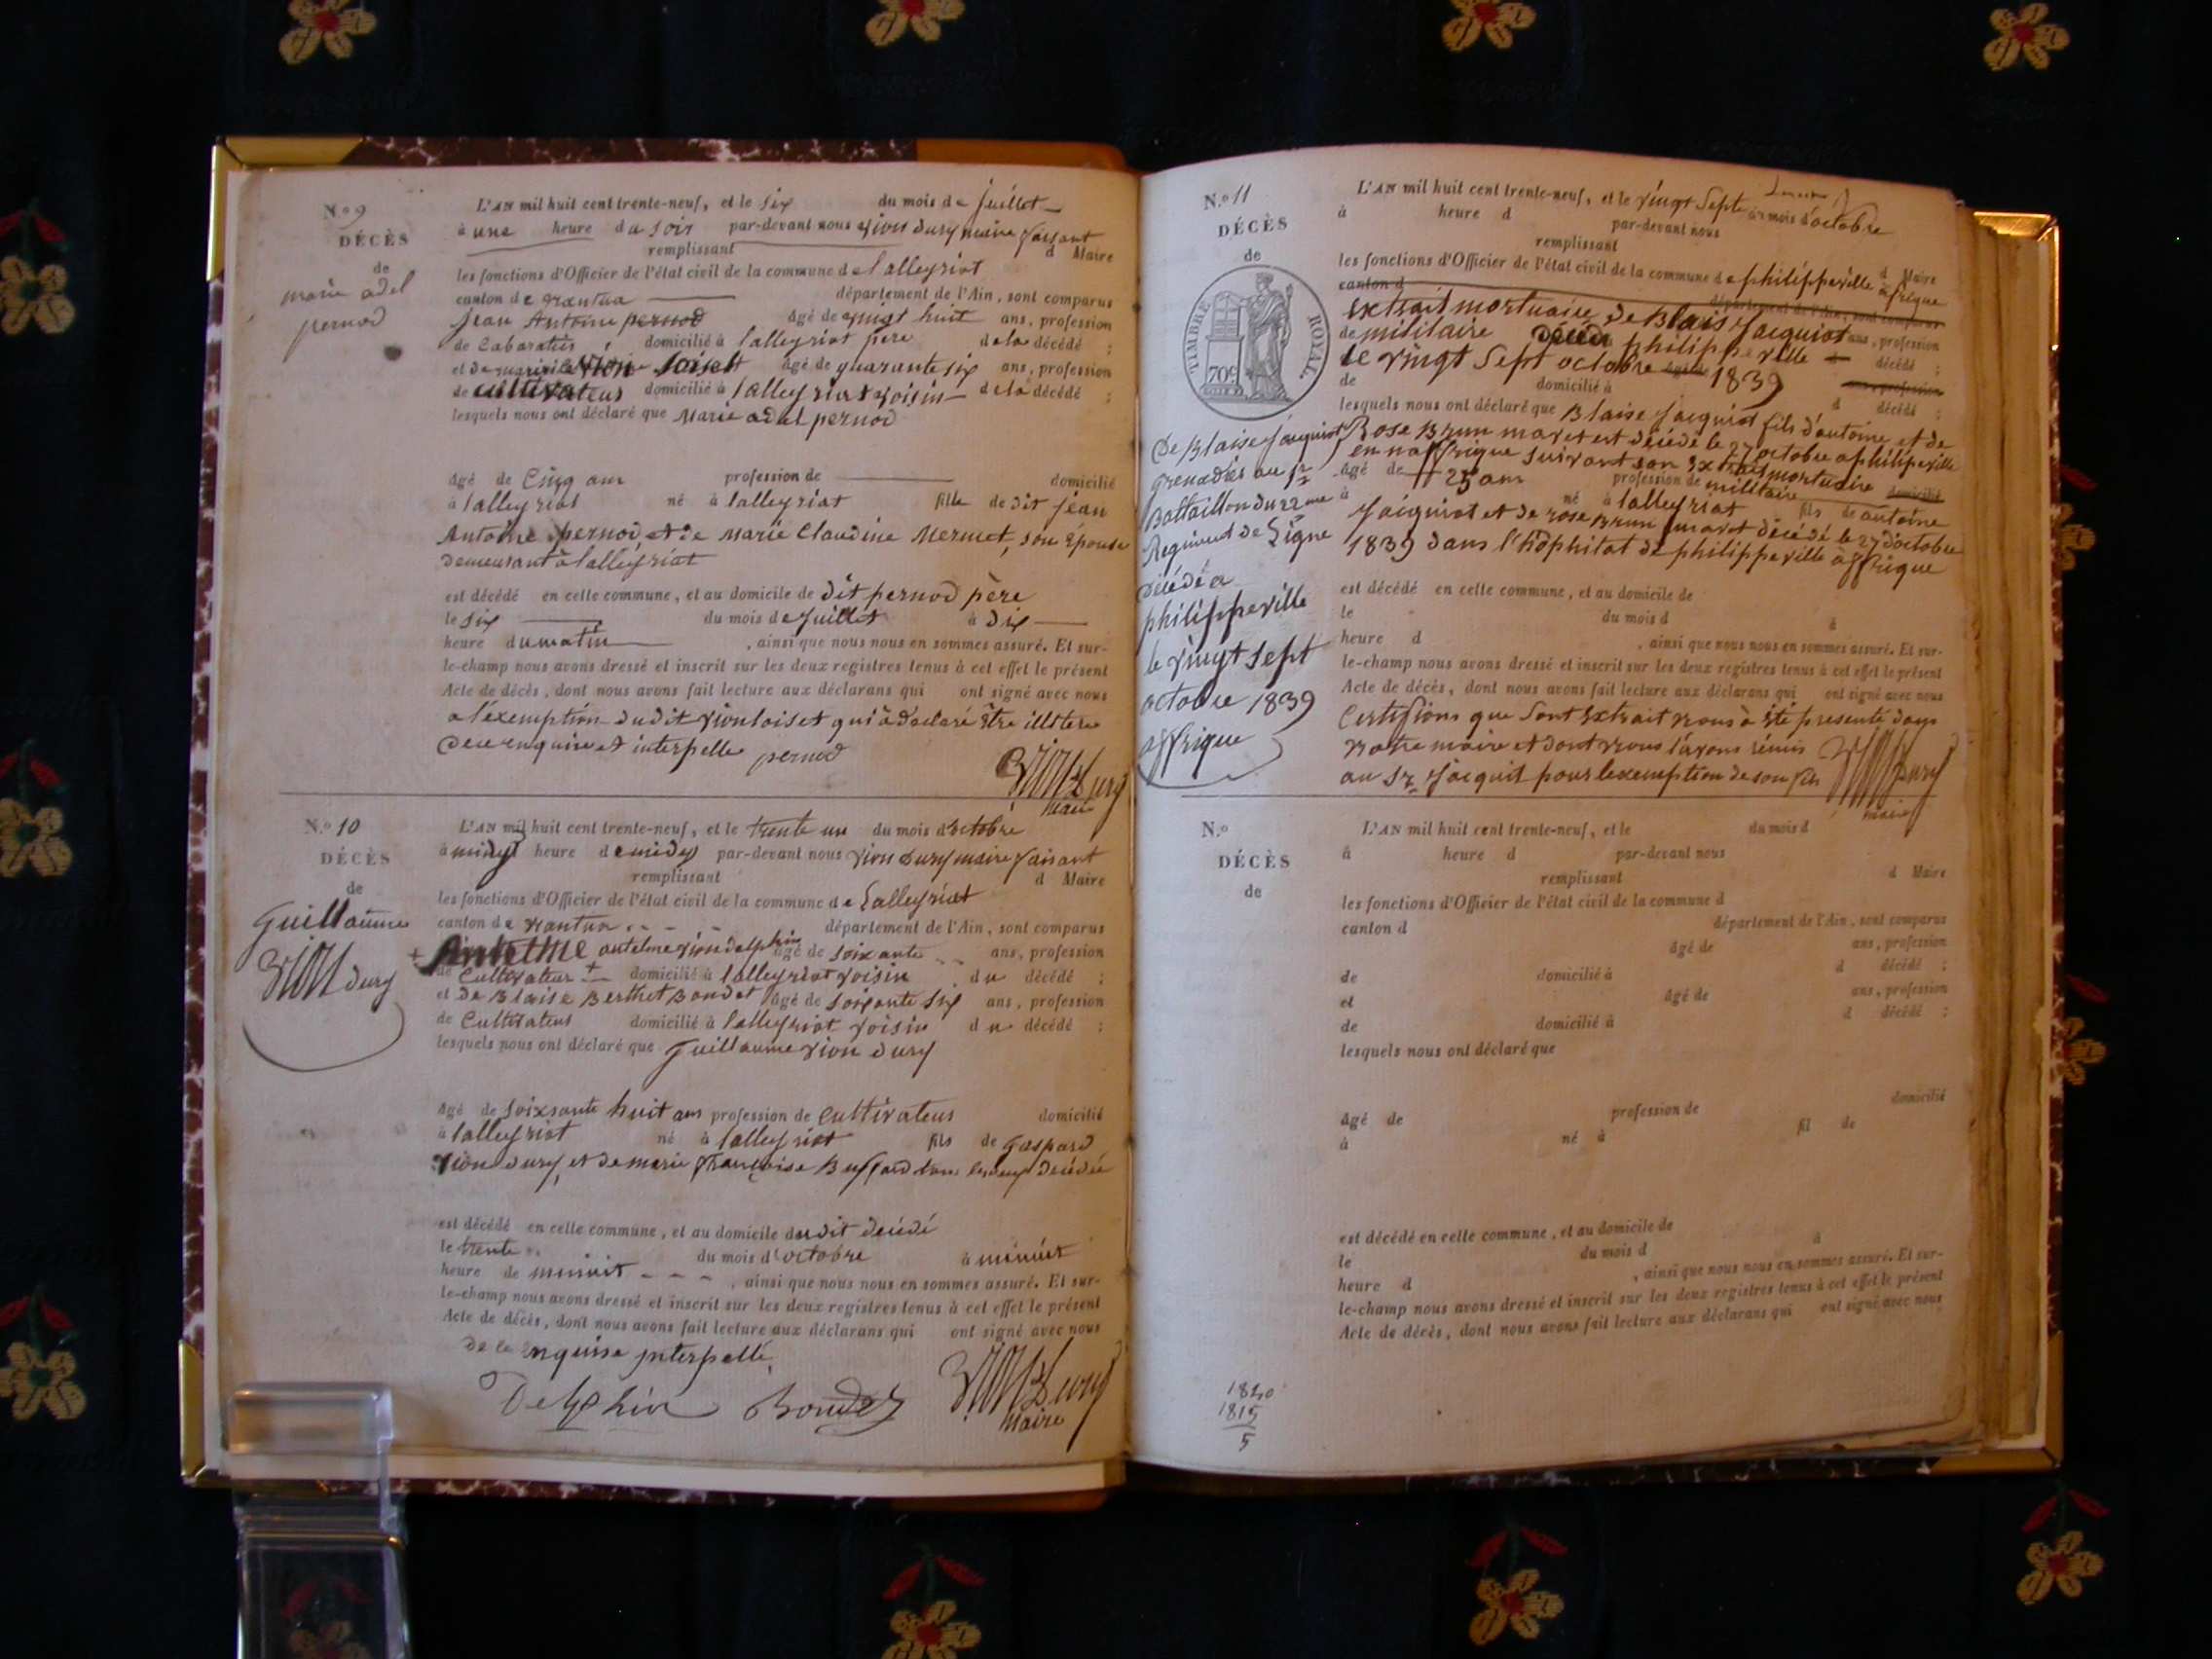 N.o 9
DÉCÈS
de
marie adel
pernod
L'AN mil huit cent trente-neuf, et le six du mois de juillet
à une heure du soir par-devant nous vion dury maire faisant
remplissant d Maire
les fonctions d'Officier de l'état civil de la commune de lalleyriat
canton de nantua département de l'Ain, sont comparus
jean Antoine pernod âgé de vingt huit ans, profession
de Cabaratier domicilié à lalleyriat père de la décédé ;
et de Vion Loiset âgé de quarante six ans, profession
de cultivateur domicilié à lalleyriat voisin de la décédé ;
lesquels nous ont déclaré que Marie adel pernod
âgé de Cinq ans profession de domicilié
à lalleyriat né à lalleyriat fille de dit jean
Antoine pernod et de Marie Claudine Mermet, son Épouse
demeurant à lalleyriat
est décédé en cette commune, et au domicile de dit pernod père
le six du mois de juillet à dix
heure du matin , ainsi que nous nous en sommes assuré. Et sur-
le-champ nous avons dressé et inscrit sur les deux registres tenus à cet effet le présent
Acte de décès, dont nous avons fait lecture aux déclarans qui ont signé avec nous
a l'éxemption dudit vion loiset qui à déclaré être illetere
de ce enquire et interpelle pernod
Vion Dury
maire
N.o 10
DÉCÈS
de
Guillaume
Vion dury
L'AN mil huit cent trente-neuf, et le trente un du mois d'octobre
à midy heure de midy par-devant nous vion dury maire faisant
remplissant d Maire
les fonctions d'Officier de l'état civil de la commune de Lalleyriat
canton de nantua département de l'Ain, sont comparus
+ Antelme antelme vion delphin âgé de soixante ans, profession
de Cultivateur + domicilié à lalleyriat voisin du décédé ;
et de Blaise Berthet Bondet âgé de soixante six ans, profession
de Cultivateur domicilié à lalleyriat voisin du décédé ;
lesquels nous ont déclaré que Guillaume vion dury
âgé de soixsante huit ans profession de cultivateur domicilié
à lalleyriat né à lalleyriat fils de Gaspard
vion dury et de marie françoise Buffard tous les deux décédé
est décédé en cette commune, et au domicile dudit décédé
le trente du mois d'octobre à minuit
heure de minuit , ainsi que nous nous en sommes assuré. Et sur-
le-champ nous avons dressé et inscrit sur les deux registres tenus à cet effet le présent
Acte de décès, dont nous avons fait lecture aux déclarans qui ont signé avec nous
de ce enquise jnterpellé
Delphin Bondet Vion Dury
Maire
N.o 11
DÉCÈS
de
TIMBRE ROYAL
70c
De Blaise jacquiot
grenadier au 1er
Battaillon du 22me
Regiment de Ligne
décédé a
philippeville
le vingt sept
octobre 1839
affrique
L'AN mil huit cent trente-neuf, et le vingt sept du mois d'octobre
à heure d par-devant nous
remplissant d Maire
les fonctions d'Officier de l'état civil de la commune de philippeville afrique
canton d département de l'Ain, sont comparus
extrait mortuaire de Blais jacquiot ans, profession
de militaire décédé à philippeville décédé ;
le vingt sept octobre 1839 ans, profession
de domicilié à d décédé ;
lesquels nous ont déclaré que Blaise jacquiot fils d'antoine et de
Rose Brun maret est décédé le 27 octobre a philipeville
en naffrique suivant son Extrait mortuaire
âgé de 25 ans profession de militaire domicilié
à né à lalleyriat fils de antoine
jacquiot et de rose Brun maret décédé le 27 d'octobre
1839 dans l'hôphital de philippeville à ffrique
est décédé en cette commune, et au domicile de
le du mois d à
heure d , ainsi que nous nous en sommes assuré. Et sur-
le-champ nous avons dressé et inscrit sur les deux registres tenus à cet effet le présent
Acte de décès, dont nous avons fait lecture aux déclarans qui ont signé avec nous
Certifions que sont Extrait nous à été presenté dans
notre mairie et dont nous l'avons rémis
au Sr jacquit pour lexemption de son fils Vion Dury
maire
N.o
DÉCÈS
de
L'AN mil huit cent trente-neuf, et le du mois d
à heure d par-devant nous
remplissant d Maire
les fonctions d'Officier de l'état civil de la commune d
canton d département de l'Ain, sont comparus
âgé de ans, profession
de domicilié à d décédé ;
et âgé de ans, profession
de domicilié à d décédé ;
lesquels nous ont déclaré que
âgé de profession de domicilié
à né à fil de
est décédé en cette commune, et au domicile de
le du mois d à
heure d , ainsi que nous nous en sommes assuré. Et sur-
le-champ nous avons dressé et inscrit sur les deux registres tenus à cet effet le présent
Acte de décès, dont nous avons fait lecture aux déclarans qui ont signé avec nous
1820
1815
5